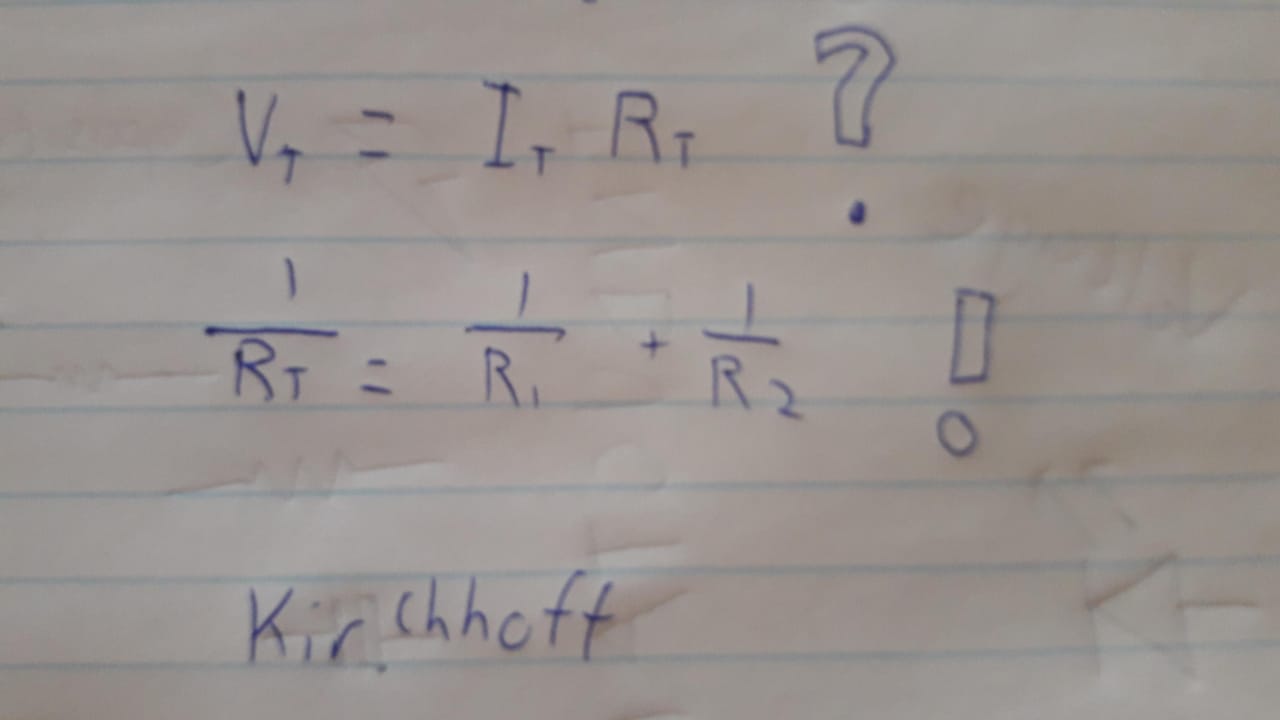 V_T = I_T R_T ?
1/R_T = 1/R_1 + 1/R_2 !
Kirchhoff